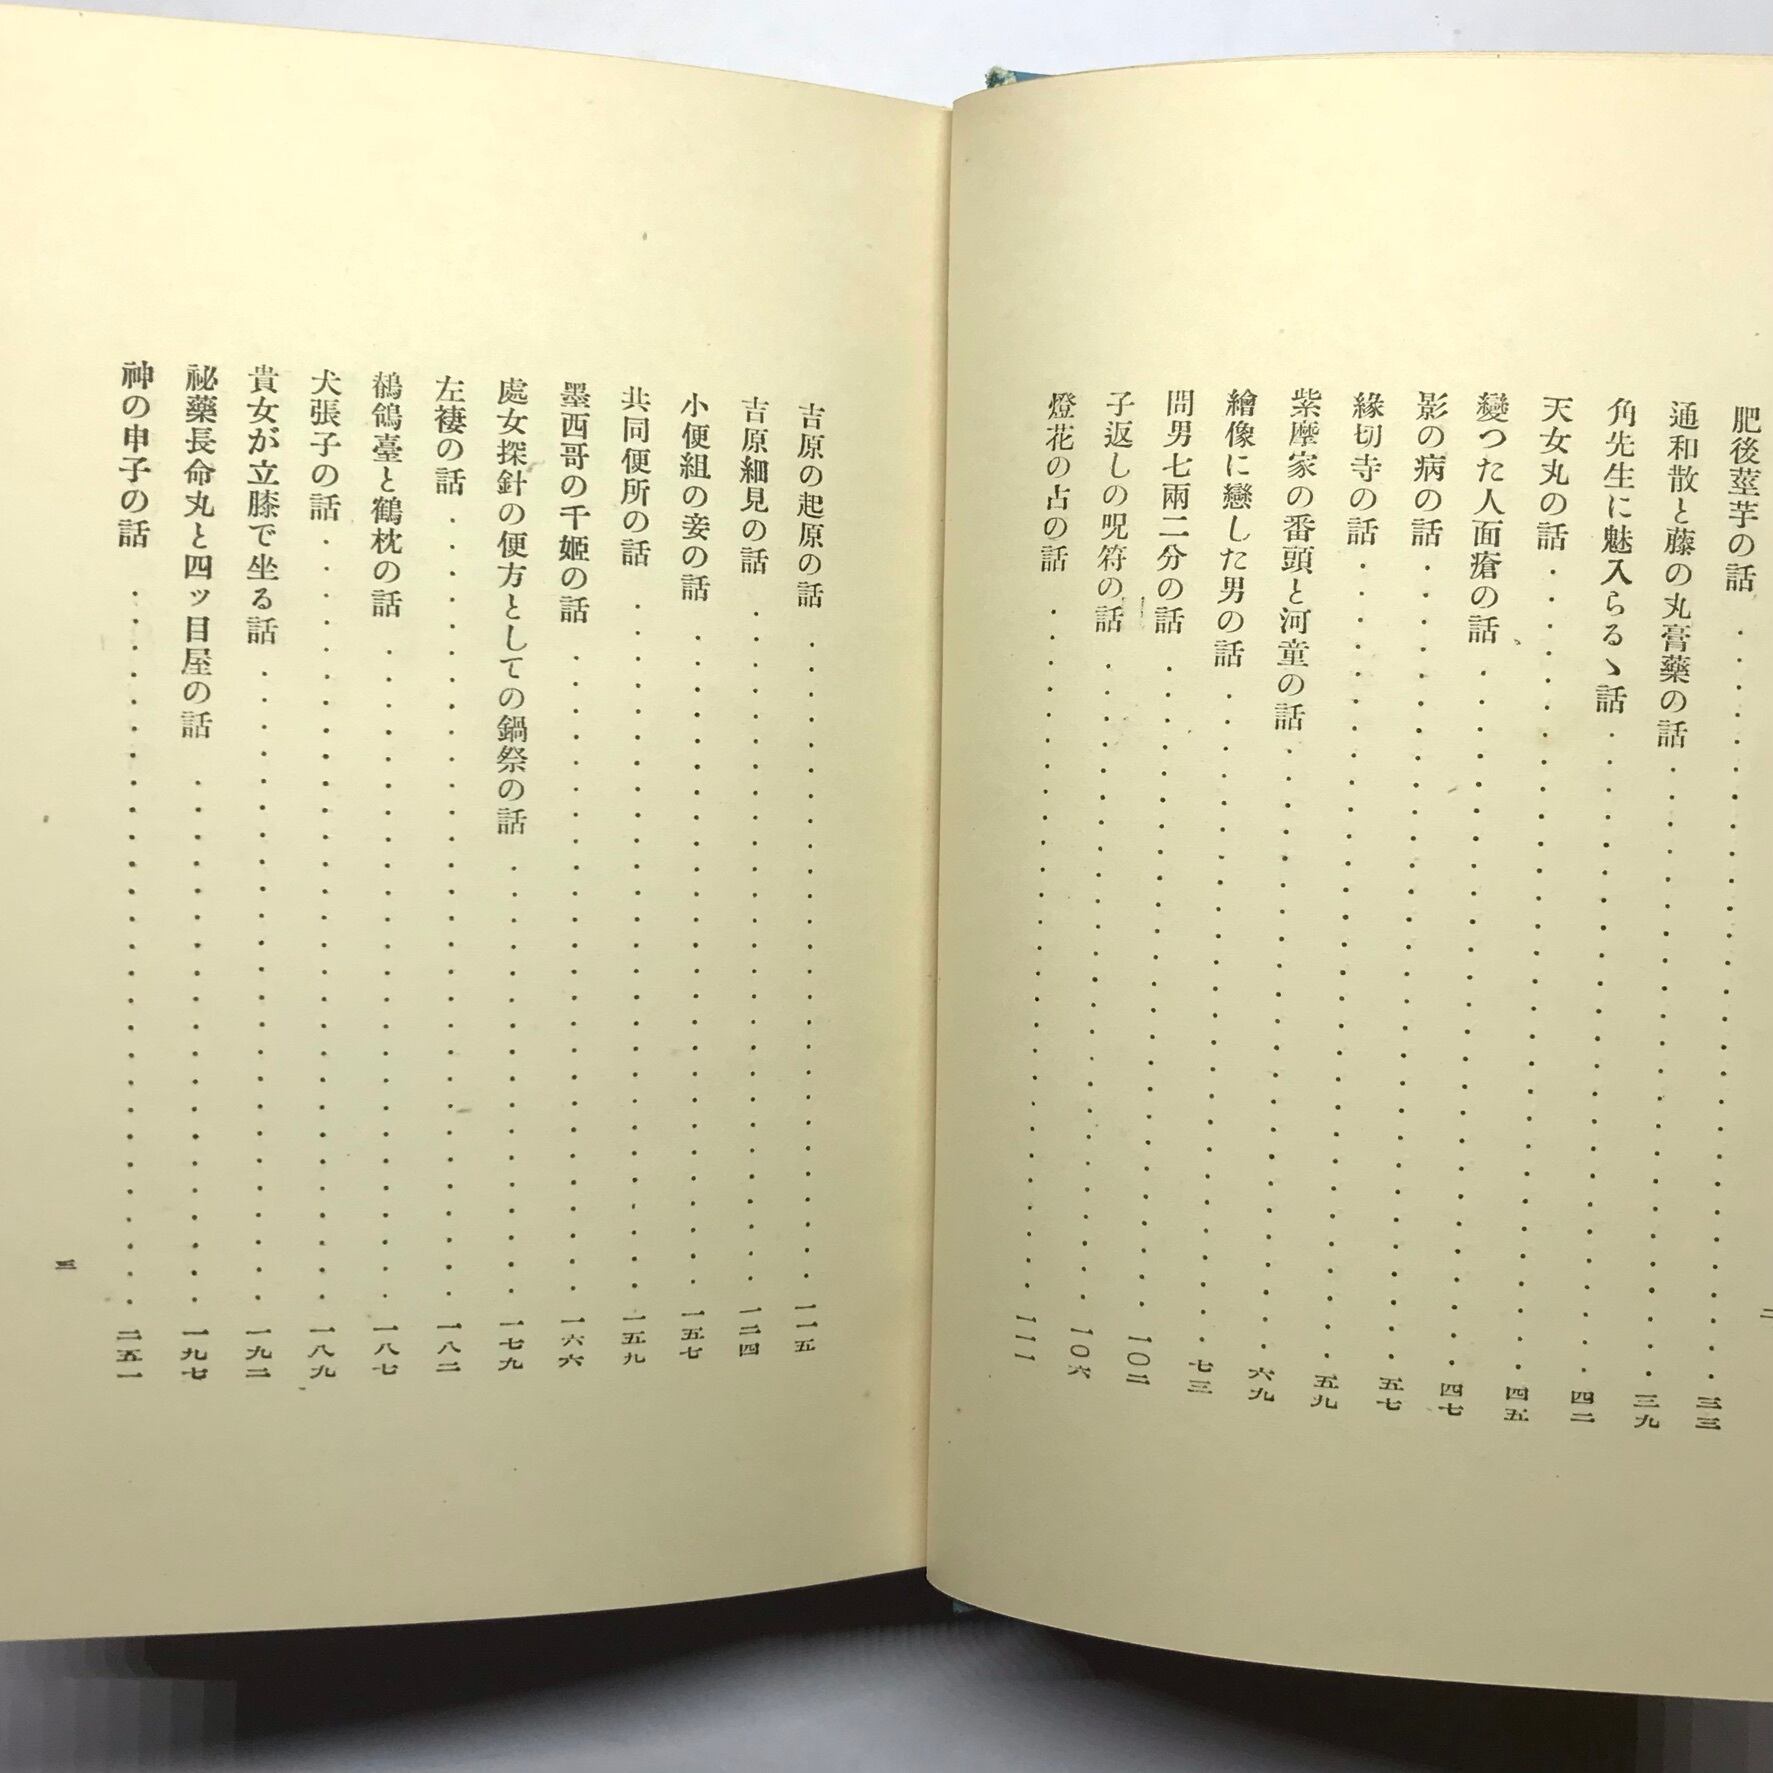 二
肥後莖芋の話・・・・・・・・三三
通和散と藤の丸膏藥の話・・・・・・・・三九
角先生に魅入らるゝ話・・・・・・・・四二
天女丸の話・・・・・・・・四五
變つた人面瘡の話・・・・・・・・四七
影の病の話・・・・・・・・五七
緣切寺の話・・・・・・・・五九
紫摩家の番頭と河童の話・・・・・・・・六九
繪像に戀した男の話・・・・・・・・七三
間男七兩二分の話・・・・・・・・一〇二
子返しの呪符の話・・・・・・・・一〇六
燈花の占の話・・・・・・・・一一一
吉原の起原の話・・・・・・・・一一五
吉原細見の話・・・・・・・・一二四
小便組の妾の話・・・・・・・・一五七
共同便所の話・・・・・・・・一五九
墨西哥の千姬の話・・・・・・・・一六六
處女探針の便方としての鍋祭の話・・・・・・・・一七九
左褄の話・・・・・・・・一八二
鶺鴒臺と鶴枕の話・・・・・・・・一八七
犬張子の話・・・・・・・・一八九
貴女が立膝で坐る話・・・・・・・・一九二
祕藥長命丸と四ッ目屋の話・・・・・・・・一九七
神の申子の話・・・・・・・・二五一
三